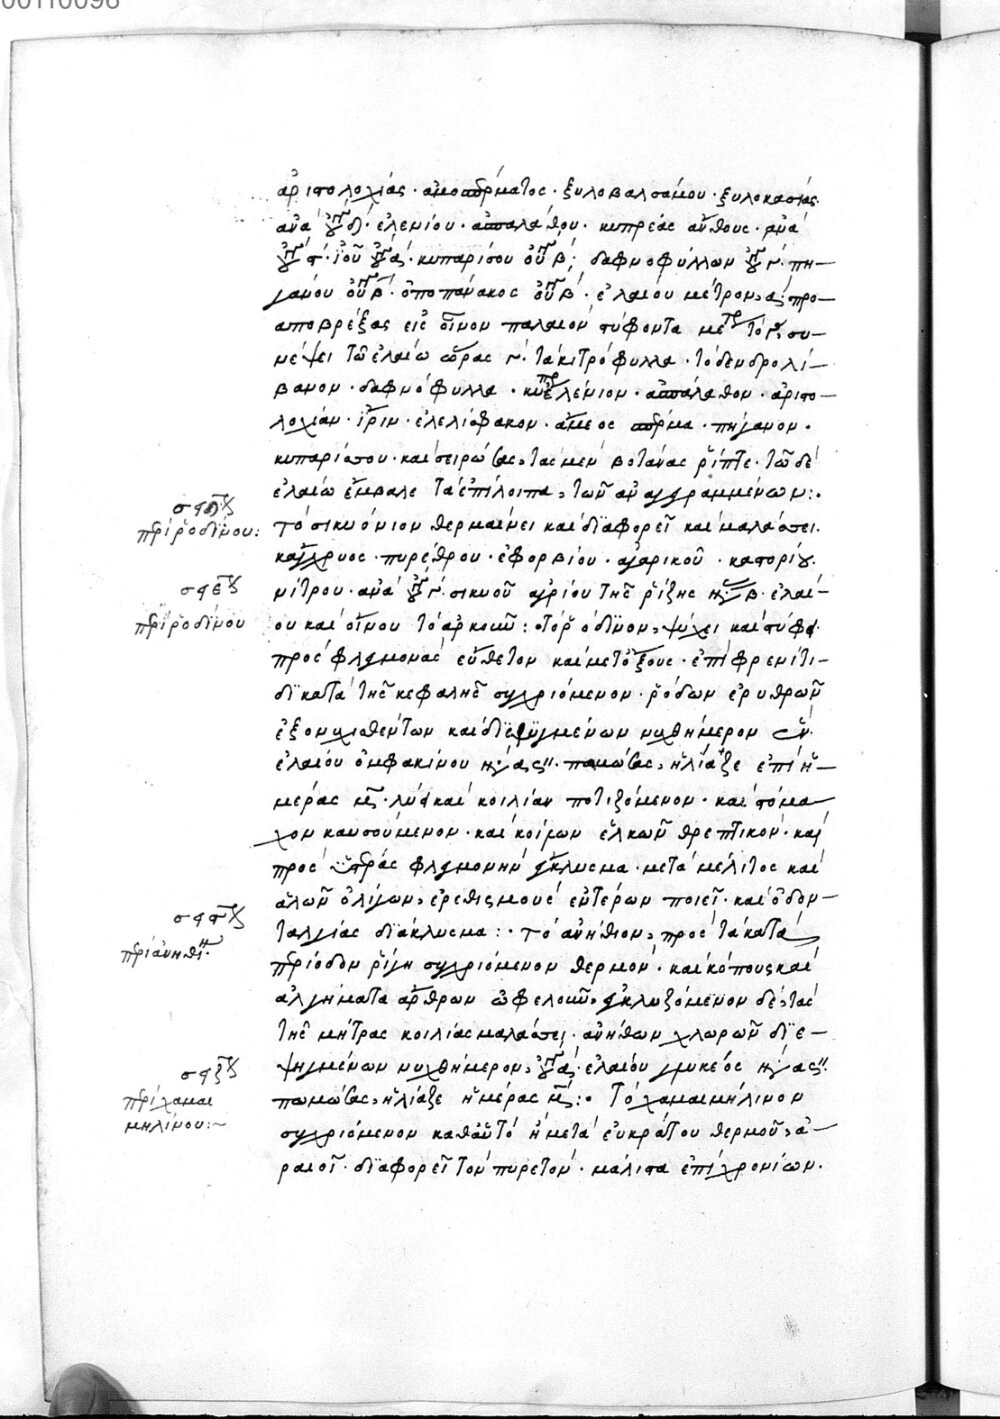 00110096
ἀριστολοχίας · ἀμεοσπέρματος · ξυλοβαλσάμου · ξυλοκασίας
ἀνά δ · ἐλενίου · ἀσπαλάθου · κυπρέας ἄνθους · ἀνά
ἰοῦ α · κυπαρίσου β · δαφνοφύλλων γ · πη-
γάνου β · ὀποπάνακος β · ἐλαίου μέτρον α · προ-
αποβρέξας εἰς οἶνον παλαιὸν στύφοντα συ-
νέψει τῶ ἐλαίω ὥρας γ · τὰ κιτρόφυλλα · τὸ δενδρολί-
βανον · δαφνόφυλλα · ἐλένιον · ἀσπάλαθον · ἀριστο-
λοχίαν · ἶριν · ἐλελίσφακον · ἄμεος σπέρμα · πήγανον ·
κυπαρίσσου · καὶ σειρώσας, τὰς μὲν βοτάνας ῥίπτε · τῶ δὲ
ἐλαίω ἔμβαλε τὰ ἐπίλοιπα, τῶν ἀναγεγραμμένων :·
τὸ σικυόνιον θερμαίνει καὶ διαφορεῖ καὶ μαλάσσει ·
κάγχρυος · πυρέθρου · ἐφορβίου · ἀγαρικοῦ · καστορίου
περὶ ῥοδίνου :
νίτρου · ἀνά γ · σικυοῦ ἀγρίου τῆς ῥίζης β · ἐλαί-
ου καὶ οἴνου τὸ ἀρκοῦν : τὸ ῥόδινον, ψύχει καὶ στύφει
περὶ ῥοδίνου
πρὸς φλεγμονὰς εὔθετον καὶ μετ' ὄξους · ἐπὶ φρενιτι-
δι κατὰ τῆς κεφαλῆς συγχριόμενον · ῥόδων ἐρυθρῶν
ἐξονυχισθέντων καὶ διεψυγμένων νυχθήμερον
ἐλαίου ὀμφακίνου πωμάσας, ἡλίαζε ἐπὶ ἡ-
μέρας μ · λύει καὶ κοιλίαν ποτιζόμενον · καὶ στόμα-
χον καυσούμενον · καὶ κοίλων ἑλκῶν θρεπτικόν · καὶ
πρὸς φλεγμονὴν ἔγκλυσμα · μετὰ μέλιτος καὶ
ἁλῶν ὀλίγων, ἐρεθισμοὺς ἐντέρων ποιεῖ · καὶ ὀδον-
ταλγίας διάκλυσμα : · τὸ ἀνήθινον, πρὸς τὰ κατὰ
περὶ ἀνηθίνου
περίοδον ῥίγη συγχριόμενον θερμόν · καὶ κόπους καὶ
ἀλγήματα ἄρθρων ὠφελοῦν, ἐγκλυζόμενον δὲ, τὰς
τῆς μήτρας κοιλίας μαλάσσει · ἀνήθων χλωρῶν διε-
ψηγμένων νυχθήμερον, α · ἐλαίου γλυκέος
πωμάσας, ἡλίαζε ἡμέρας μ :· Τὸ χαμαιμήλινον
περὶ χαμαι
μηλίνου :~
συγχριόμενον καθ' αὑτὸ ἢ μετὰ εὐκράτου θερμοῦ, ἀ-
ραιοῖ · διαφορεῖ τὸν πυρετόν · μάλιστα ἐπὶ χρονίων ·